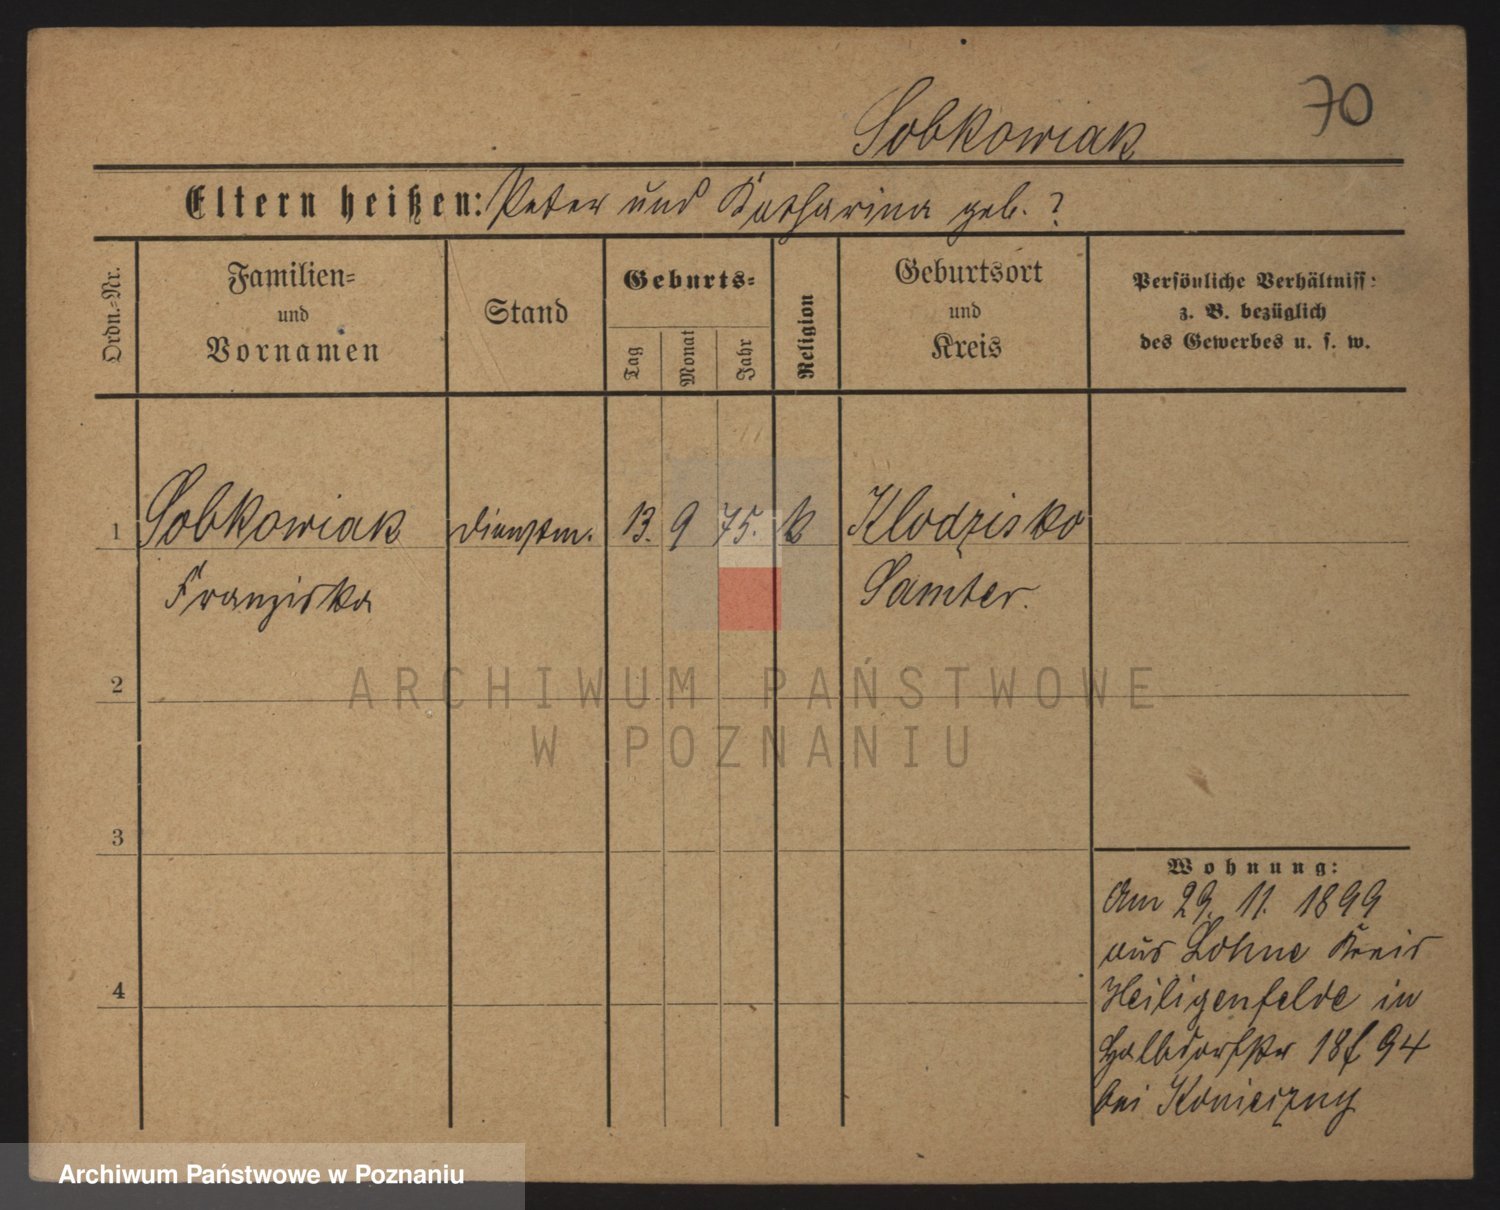 70
Sobkowiak
Eltern heißen: Peter und Katharina geb. ?
Ordn.-Nr.
Familien-
und
Vornamen
Stand
Geburts-
Tag
Monat
Jahr
Religion
Geburtsort
und
Kreis
Persönliche Verhältniss:
z. B. bezüglich
des Gewerbes u. s. w.
1 Sobkowiak Dienstm. 13. 9 75. k Klodzisko
Franziska Samter.
2
ARCHIWUM PAŃSTWOWE
W POZNANIU
3
Wohnung:
Am 29. 11. 1899
aus Lohne Kreis
4
Heiligenfelde in
Halbdorfstr 18 94
bei Konieczny
Archiwum Państwowe w Poznaniu